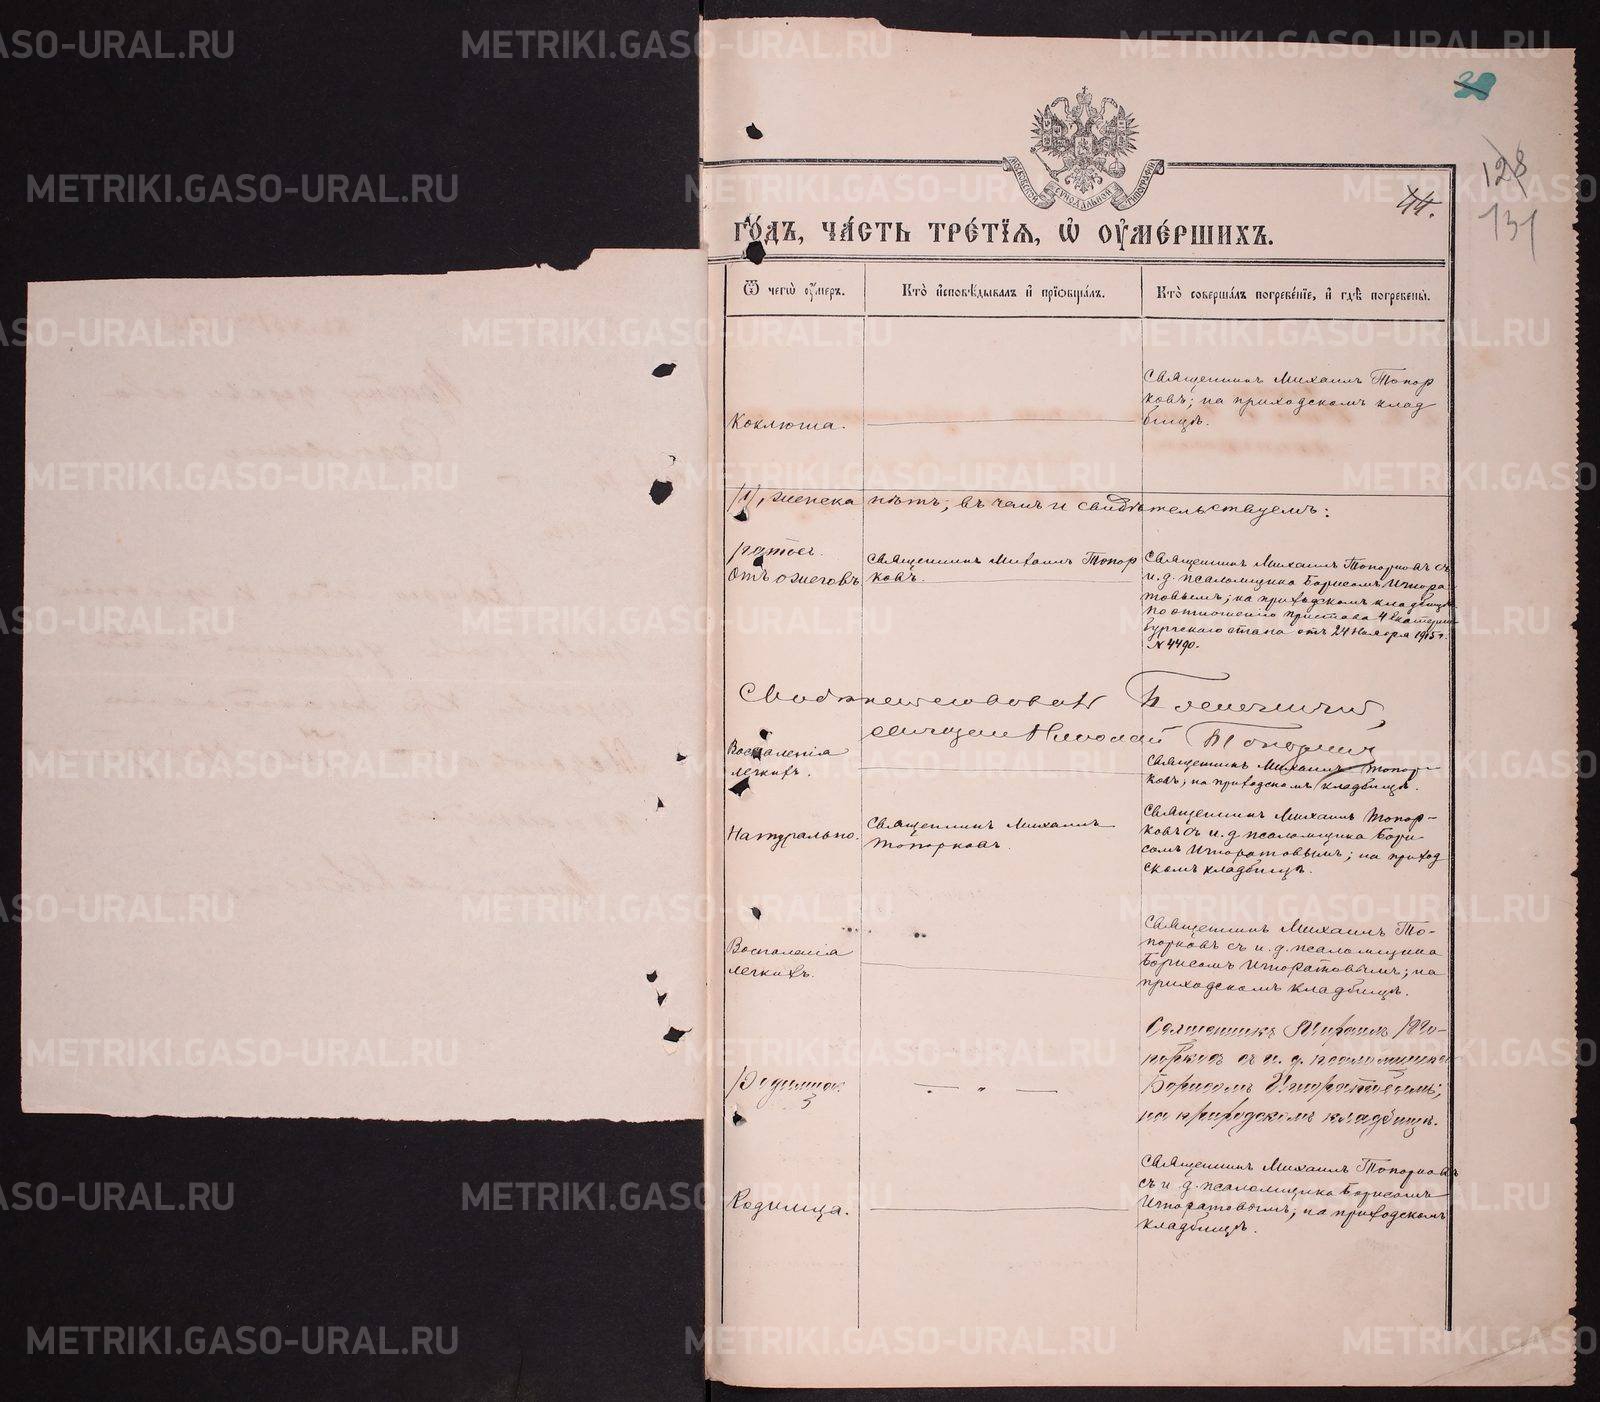 METRIKI.GASO-URAL.RU
38
128
131
44.
МОСКОВСКОЙ СѴНОДАЛЬНОЙ ТИПОГРАФІИ
го́дъ, ча́сть тре́тїѧ, ѡ҆ ᲂу҆ме́ршихъ.
Ѿ чегѡ̀ ᲂу҆́меръ.
Кто̀ и҆сповѣ́дывалъ и҆ прїѡбща́лъ.
Кто̀ соверша́лъ погребе́нїе, и҆ гдѣ̀ погребены̀.
Коклюша.
Священникъ Михаилъ Топор
ковъ; на приходскомъ клад
бищѣ.
нѣтъ, въ чемъ и свидѣтельствуемъ:
Отъ ожеговъ
Священникъ Михаилъ Топор
ковъ.
Священникъ Михаилъ Топорковъ съ
и. д. псаломщика Борисомъ Игнора
товымъ; на приходскомъ кладбищѣ
по отношенію пристава 4 Екатерин
бургскаго стана отъ 24 Ноября 1915 г.
№ 4490.
Воспаленія
легкихъ.
Священникъ Михаилъ Топор
ковъ; на приходскомъ кладбищѣ.
Натурально.
Священникъ Михаилъ
Топорковъ.
Священникъ Михаилъ Топор-
ковъ съ и. д. псаломщика Бори
сомъ Игноратовымъ; на приход
скомъ кладбищѣ.
Воспаленія
легкихъ.
Священникъ Михаилъ То-
порковъ съ и. д. псаломщика
Борисомъ Игноратовымъ; на
приходскомъ кладбищѣ.
Родимчик
Священникъ Михаилъ То-
порковъ съ и. д. псаломщика
Борисомъ Игноратовымъ;
на приходскомъ кладбищѣ.
Родимца.
Священникъ Михаилъ Топорковъ
съ и. д. псаломщика Борисомъ
Игноратовымъ; на приходскомъ
кладбищѣ.